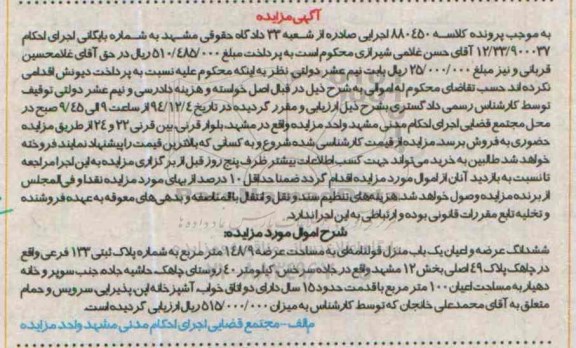 آگهی مزایده
به موجب پرونده کلاسه ۸۸۰۴۵۰ اجرایی صادره از شعبه ۳۳ دادگاه حقوقی مشهد به شماره بایگانی اجرای احکام
۱۲/۳۳/۹۰۰۰۳۷ آقای حسن غلامی شیرازی محکوم است به پرداخت مبلغ ۵۱۰/۴۸۵/۰۰۰ ریال در حق آقای غلامحسین
قربانی و نیز مبلغ ۲۵/۰۰۰/۰۰۰ ریال بابت نیم عشر دولتی نظر به اینکه محکوم علیه نسبت به پرداخت دیونش اقدامی
نکرده اند حسب تقاضای محکوم له اموالی به شرح ذیل در قبال اصل خواسته و هزینه دادرسی و نیم عشر دولتی توقیف
توسط کارشناس رسمی دادگستری بشرح ذیل ارزیابی و مقرر گردیده در تاریخ ۹۴/۱۲/۴ از ساعت ۹ الی ۹/۴۵ صبح در
محل مجتمع قضایی اجرای احکام مدنی مشهد واحد مزایده واقع در مشهد، بلوار قرنی بین قرنی ۲۲ و ۲۴ از طریق مزایده
حضوری به فروش برسد. مزایده از قیمت کارشناسی شده شروع و به کسانی که بالاترین قیمت را پیشنهاد نمایند فروخته
خواهد شد طالبین به خرید می تواند جهت کسب اطلاعات بیشتر ظرف پنج روز قبل از برگزاری مزایده به این اجرا مراجعه
تا نسبت به بازدید آنان از اموال مورد مزایده اقدام گردد ضمنا حداقل ۱۰ درصد از بهای مورد مزایده نقدا و فی المجلس
از برنده مزایده وصول خواهد شد. هزینه های تنظیم سند و نقل و انتقال بالمناصفه و بدهی های معوقه به عهده فروشنده
و تخلیه تابع مقررات قانونی بوده و ارتباطی به این اجرا ندارد.
شرح اموال مورد مزایده:
ششدانگ عرصه و اعیان یک باب منزل قولنامه ای به مساحت عرصه ۱۴۸/۹ متر مربع به شماره پلاک ثبتی ۱۳۳ فرعی واقع
در چاهک پلاک ۴۹ اصلی بخش ۱۲ مشهد واقع در جاده سرخس کیلومتر ۴۰ روستای چاهک، حاشیه جاده، جنب سوپر و خانه
دهیار به مساحت اعیان ۱۰۰ متر مربع با قدمت حدود ۱۵ سال دارای دو اتاق خواب آشپزخانه این پذیرایی سرویس و حمام
متعلق به آقای محمدعلی خانجان که توسط کارشناس به میزان ۵۱۵/۰۰۰/۰۰۰ ریال ارزیابی گردیده است.
م الف - مجتمع قضایی اجرای احکام مدنی مشهد واحد مزایده